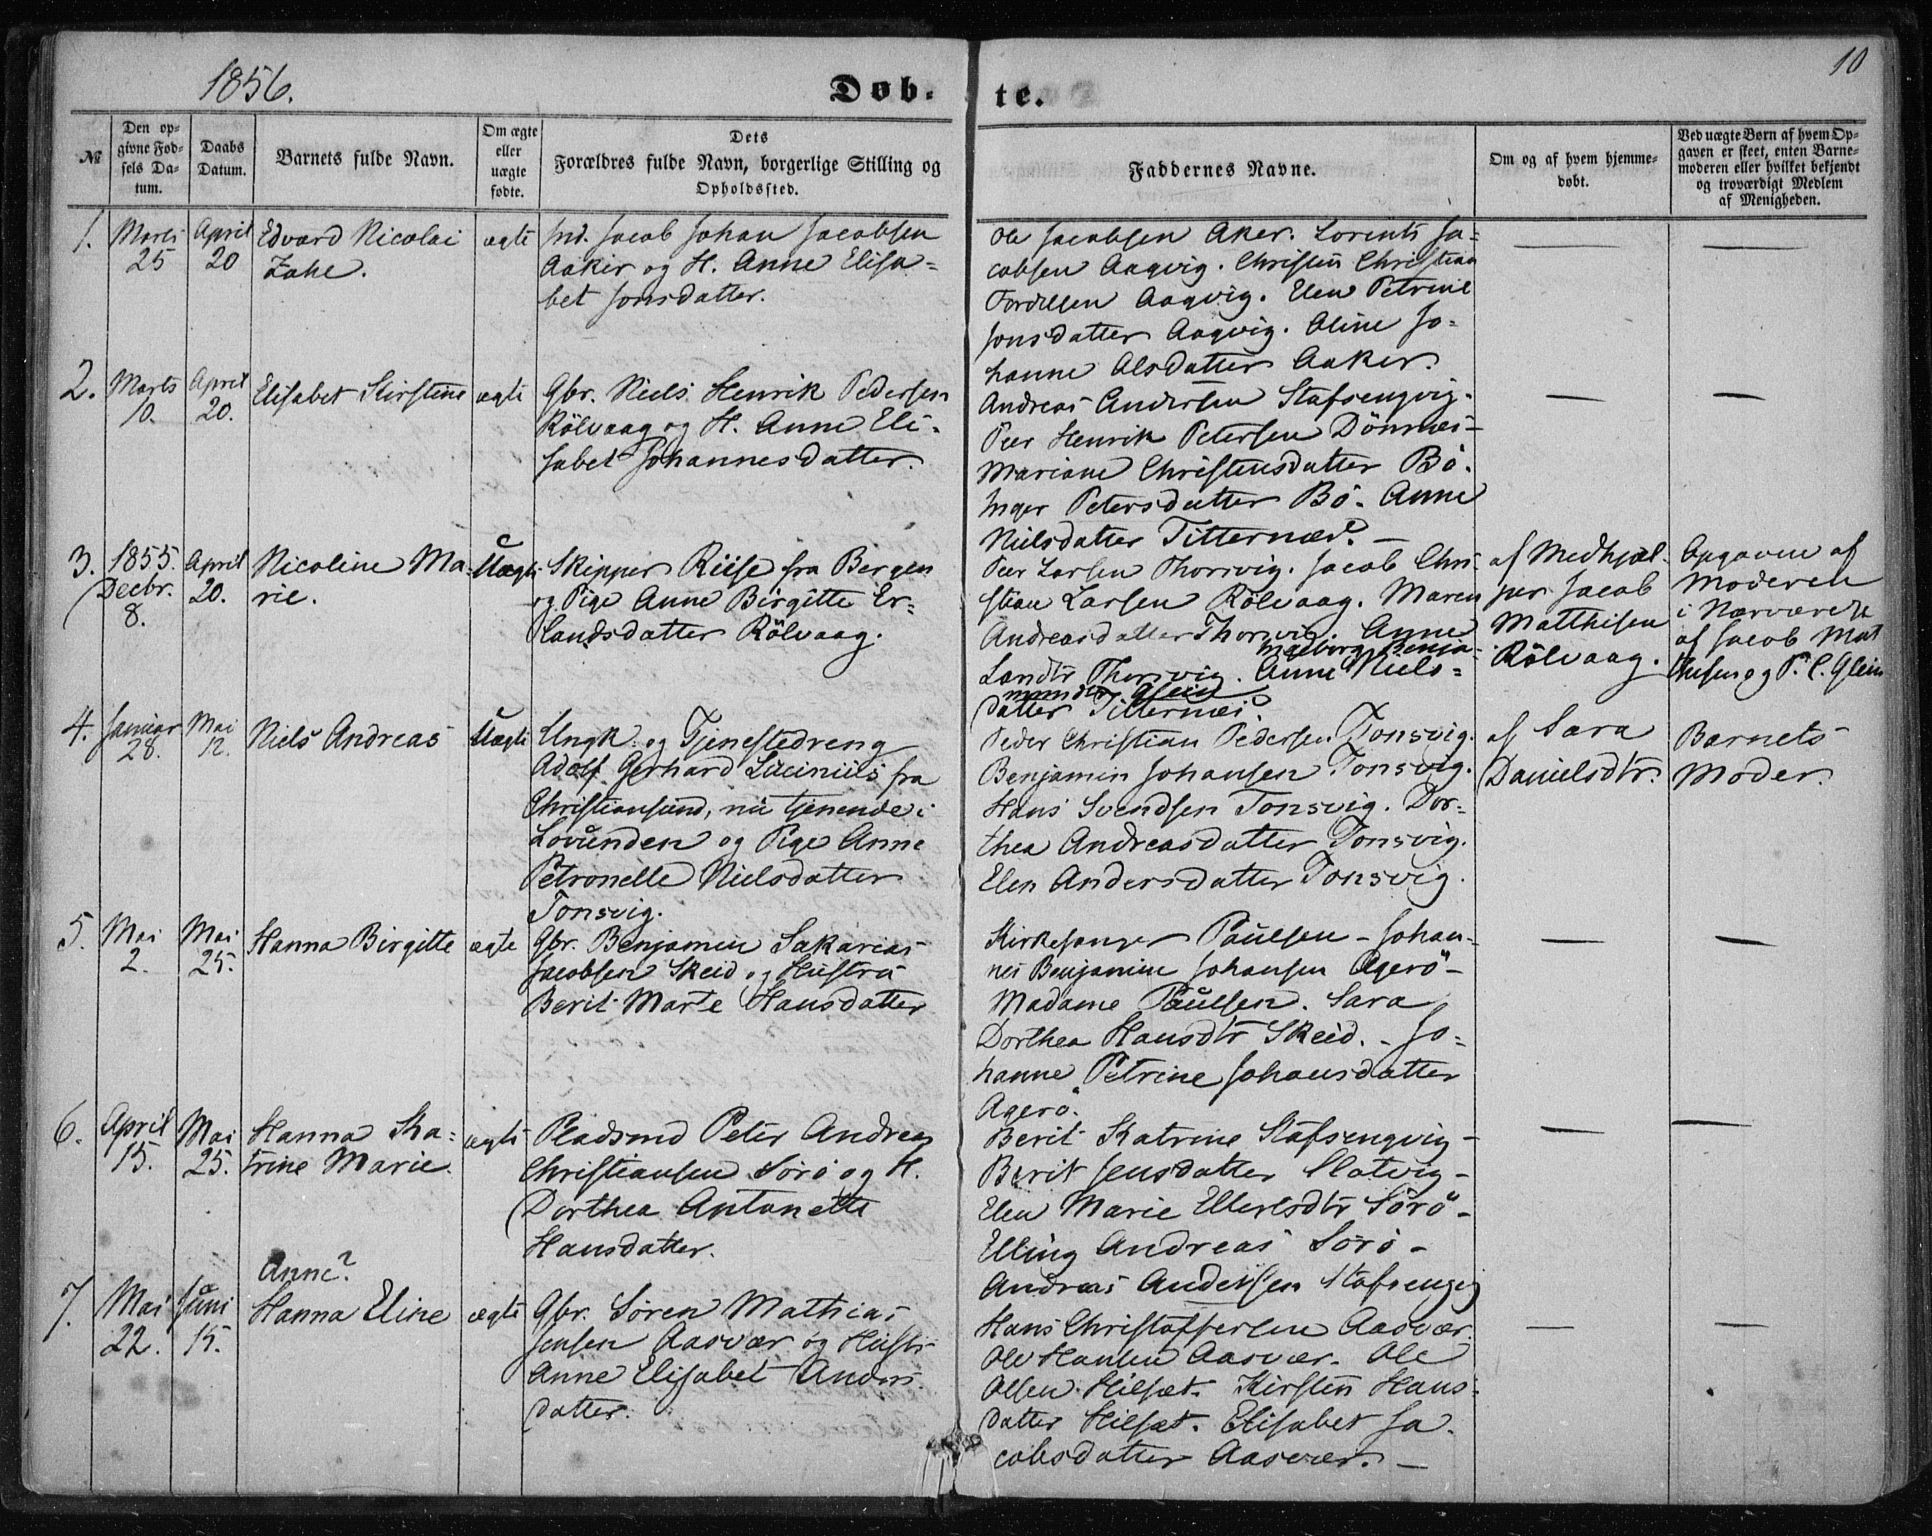 1856.
Døb-
te.
10
№
Den op-
givne Fød-
sels Da-
tum.
Daabs
Datum.
Barnets fulde Navn.
Om ægte
eller
uægte
fødte.
Dets
Forældres fulde Navn, borgerlige Stilling og
Opholdssted.
Faddernes Navne.
Om og af hvem hjemme-
døbt.
Ved uægte Børn af hvem Op-
gaven er skeet, enten Barne-
moderen eller hvilket bekjendt
og troværdigt Medlem
af Menigheden.
1.
Marts
25
April
20
Edvard Nicolai
Zahe.
ægte
Ind. Jacob Johan Jacobsen
Aaker og H. Anne Elisa-
bet Jonsdatter.
Ole Jacobsen Aker. Lorents Ja-
cobsen Aaqvig. Christen Christian
Aaqvig. Elen Petrine
Jonsdatter Aaqvig. Oline Jo-
hanne Olsdatter Aaker.
2.
Marts
10.
April
20.
Elisabet Kirstine
ægte
Gbr. Niels Henrik Pedersen
Rölvaag og H. Anne Eli-
sabet Johannesdatter.
Andreas Andersen Stafsengvig.
Peer Henrik Petersen Dönnes-
Mariane Christensdatter Bö.
Inger Petersdatter Bö. Anne
Nielsdatter Titternæs. —
3.
1855.
Decbr.
8.
April
20.
Nicoline Ma-
rie.
Uægte
Skipper Riise fra Bergen
og Pige Anne Birgitte Er-
landsdatter Rölvaag.
Peer Larsen Thorsvig. Jacob Chri-
stian Larsen Rölvaag. Maren
Andreasdatter Thorsvig. Anne
Ingeborg Benja-
Landtr Thorsvig. Anne Niels-
minsdtr Glein
datter Titternæs.
af Medhjæl-
per Jacob
Matthisen
Rölvaag.
Opgaven af
Moderen
i Nærværelse
af Jacob Mat
thisen og P. C. Glein
4.
Januar
28.
Mai
12.
Niels Andreas
Uægte
Ungk. og Tjenestedreng
Adolf Gerhard Lucinius fra
Christiansund, nu tjenende i
Lovunden og Pige Anne
Petronelle Nielsdatter
Tonsvig.
Peder Christian Pedersen Tonsvig.
Benjamin Johansen Tonsvig.
Hans Svendsen Tonsvig. Dor-
thea Andreasdatter Tonsvig.
Elen Andersdatter Tonsvig.
af Sara
Danielsdtr.
Barnets
Moder.
5.
Mai
2.
Mai
25.
Hanna Birgitte
ægte
Gbr. Benjamin Sakarias
Jacobsen Skeid og Hustru
Berit Marte Hansdatter
Kirkesanger Paulsen - Johan-
nes Benjamin Johansen Agerö -
Madame Paulsen. Sara
Dorthea Hansdtr Skeid. - Jo-
hanne Petrine Johansdatter
Agerö.
6.
April
15.
Mai
25.
Hanna Ka-
trine Marie.
ægte
Pladsmd Peter Andreas
Christiansen Sörö og H.
Dorthea Antonette
Hansdatter.
Berit Katrine Stafsengvig -
Berit Jensdatter Slotvig -
Elen Marie Ellertsdtr Sörö -
Elling Andreas Sörö -
Andreas Andersen Stafsengvig
7.
Mai
22.
Juni
15.
Anne?
Hanna Eline
ægte
Gbr. Sören Mathias
Jensen Aasvær og Hustr
Anne Elisabet Anders
datter.
Hans Christoffersen Aasvær.
Ole Hansen Aasvær. Ole
Olsen Hilsæt. Kirsten Hans-
datter Hilsæt. Elisabet Ja-
cobsdatter Aasvær. —